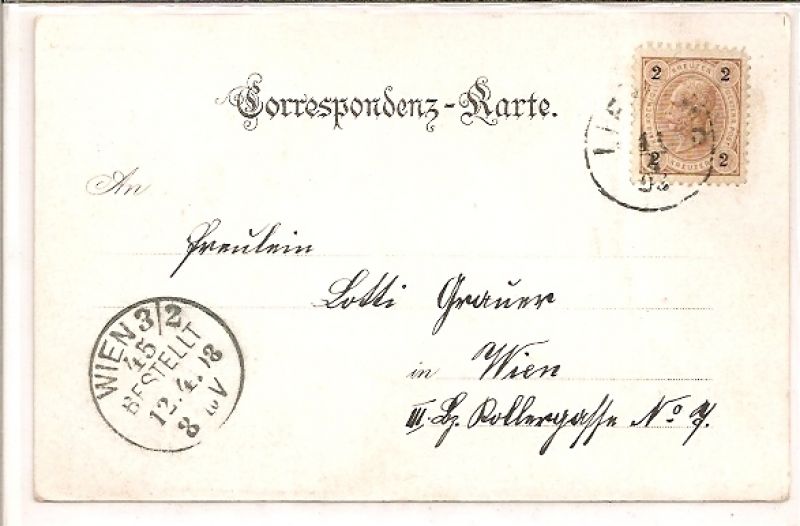 Correspondenz-Karte.
2 KREUZER 2
2 KREUZER 2
An
Freulein
Lotti Grauer
in Wien
III. Bz. Kollergasse No 7.
WIEN 3/2
45
BESTELLT
12.4.98
8 V